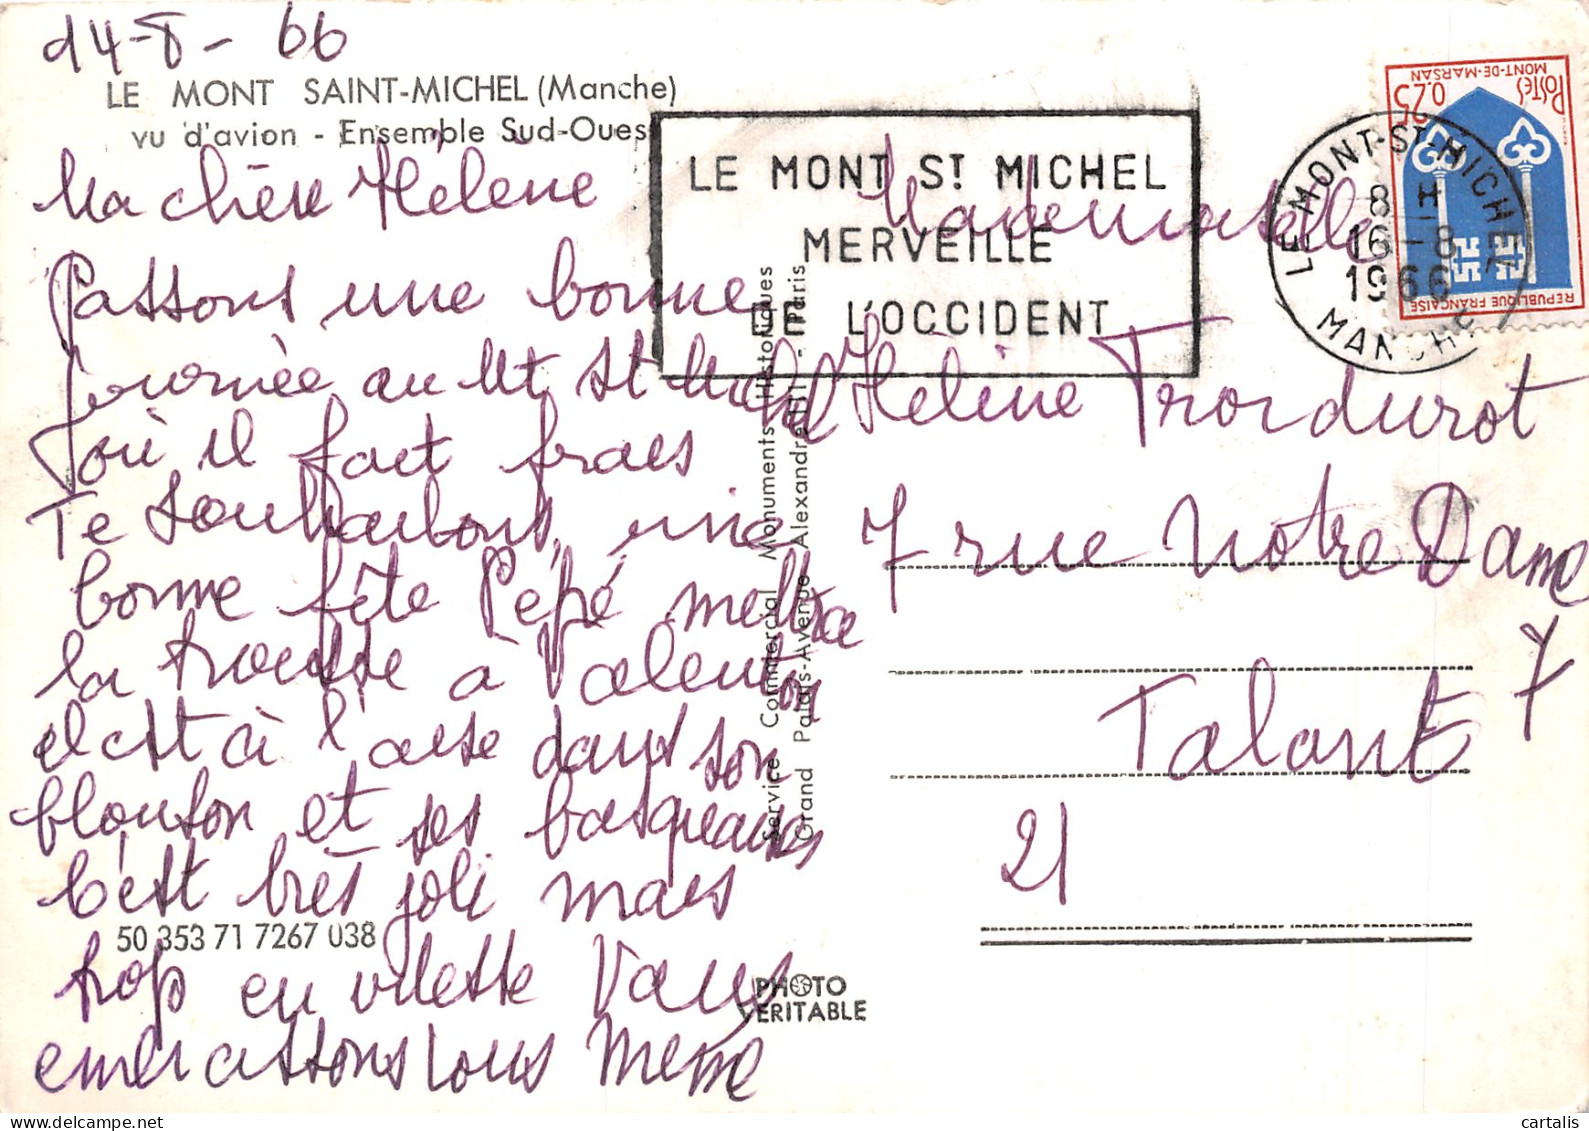 14-8-66
LE MONT SAINT-MICHEL (Manche)
vu d'avion - Ensemble Sud-Ouest
Ma chère Hélène
Passons une bonne
journée au Mt St Michel
où il fait frais
Te souhaitons une
bonne fête Pépé mettra
la trousse à Valentin
il est à l'aise dans son
blouson et ses basqueaux
C'est très joli mais
50 353 71 7267 038
trop en vitesse Vous
embrassons tous Mémé
Service Commercial Monuments Historiques
Grand Palais - Avenue Alexandre III - Paris
PHOTO
VERITABLE
LE MONT ST MICHEL
MERVEILLE
DE L'OCCIDENT
LE MONT-ST-MICHEL
8 H
16-8
1966
MANCHE
POSTES
0,25
MONT-DE-MARSAN
REPUBLIQUE FRANÇAISE
Mademoiselle
Hélène Trordurot
7 rue Notre Dame
7
Talant
21
cartalis